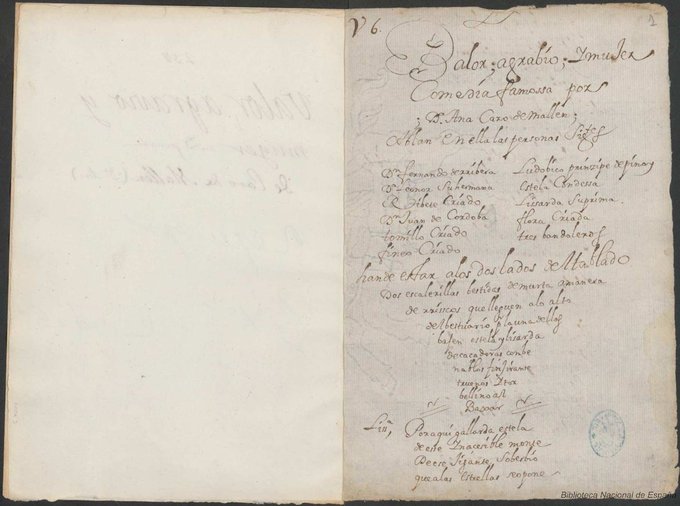 V 6.
1
Valor; agrabio; Y mujer
Comedia famossa por
; D.ª Ana Caro de mallen;
Ablan En ella las personas Sig.tes
D.n fernando de rribera
D.ª leonor Su hermana
Ribete Criado
D.n Juan de Cordoba
tomillo Criado
fineo Criado
Ludobico prinzipe de pinoy
Estela Condessa
Lisarda Su prima
flora Criada
tres bandoleros
han de estar a los dos lados del tablado
Dos escalerillas bestidas de murta a manera
de rriscos que lleguen a lo alto
del bestuario p la una dellas
baxen estela y lisarda
de caçadoras con be
nablos finjiranse
truenos Y to
bellino al
Baxar
Lis.ª
Por aqui gallarda estela
de este Ynacesible monte
De ese Jigante Soberbio
que a las Estrellas se opone
Biblioteca Nacional de España